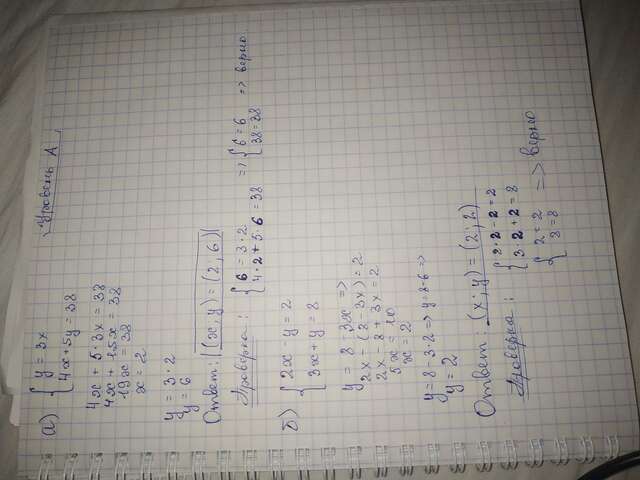 Уровень А
а) { y = 3x
4x + 5y = 38
4x + 5·3x = 38
4x + 15x = 38
19x = 38
x = 2
y = 3·2
y = 6
Ответ: (x; y) = (2; 6)
Проверка: { 6 = 3·2
4·2 + 5·6 = 38
=> { 6 = 6
38 = 38
=> верно
б) { 2x - y = 2
3x + y = 8
y = 8 - 3x =>
2x - (8 - 3x) = 2
2x - 8 + 3x = 2
5x = 10
x = 2
y = 8 - 3·2 => y = 8-6 =>
y = 2
Ответ: (x; y) = (2; 2)
Проверка: { 2·2 - 2 = 2
3·2 + 2 = 8
{ 2 = 2
8 = 8
=> верно